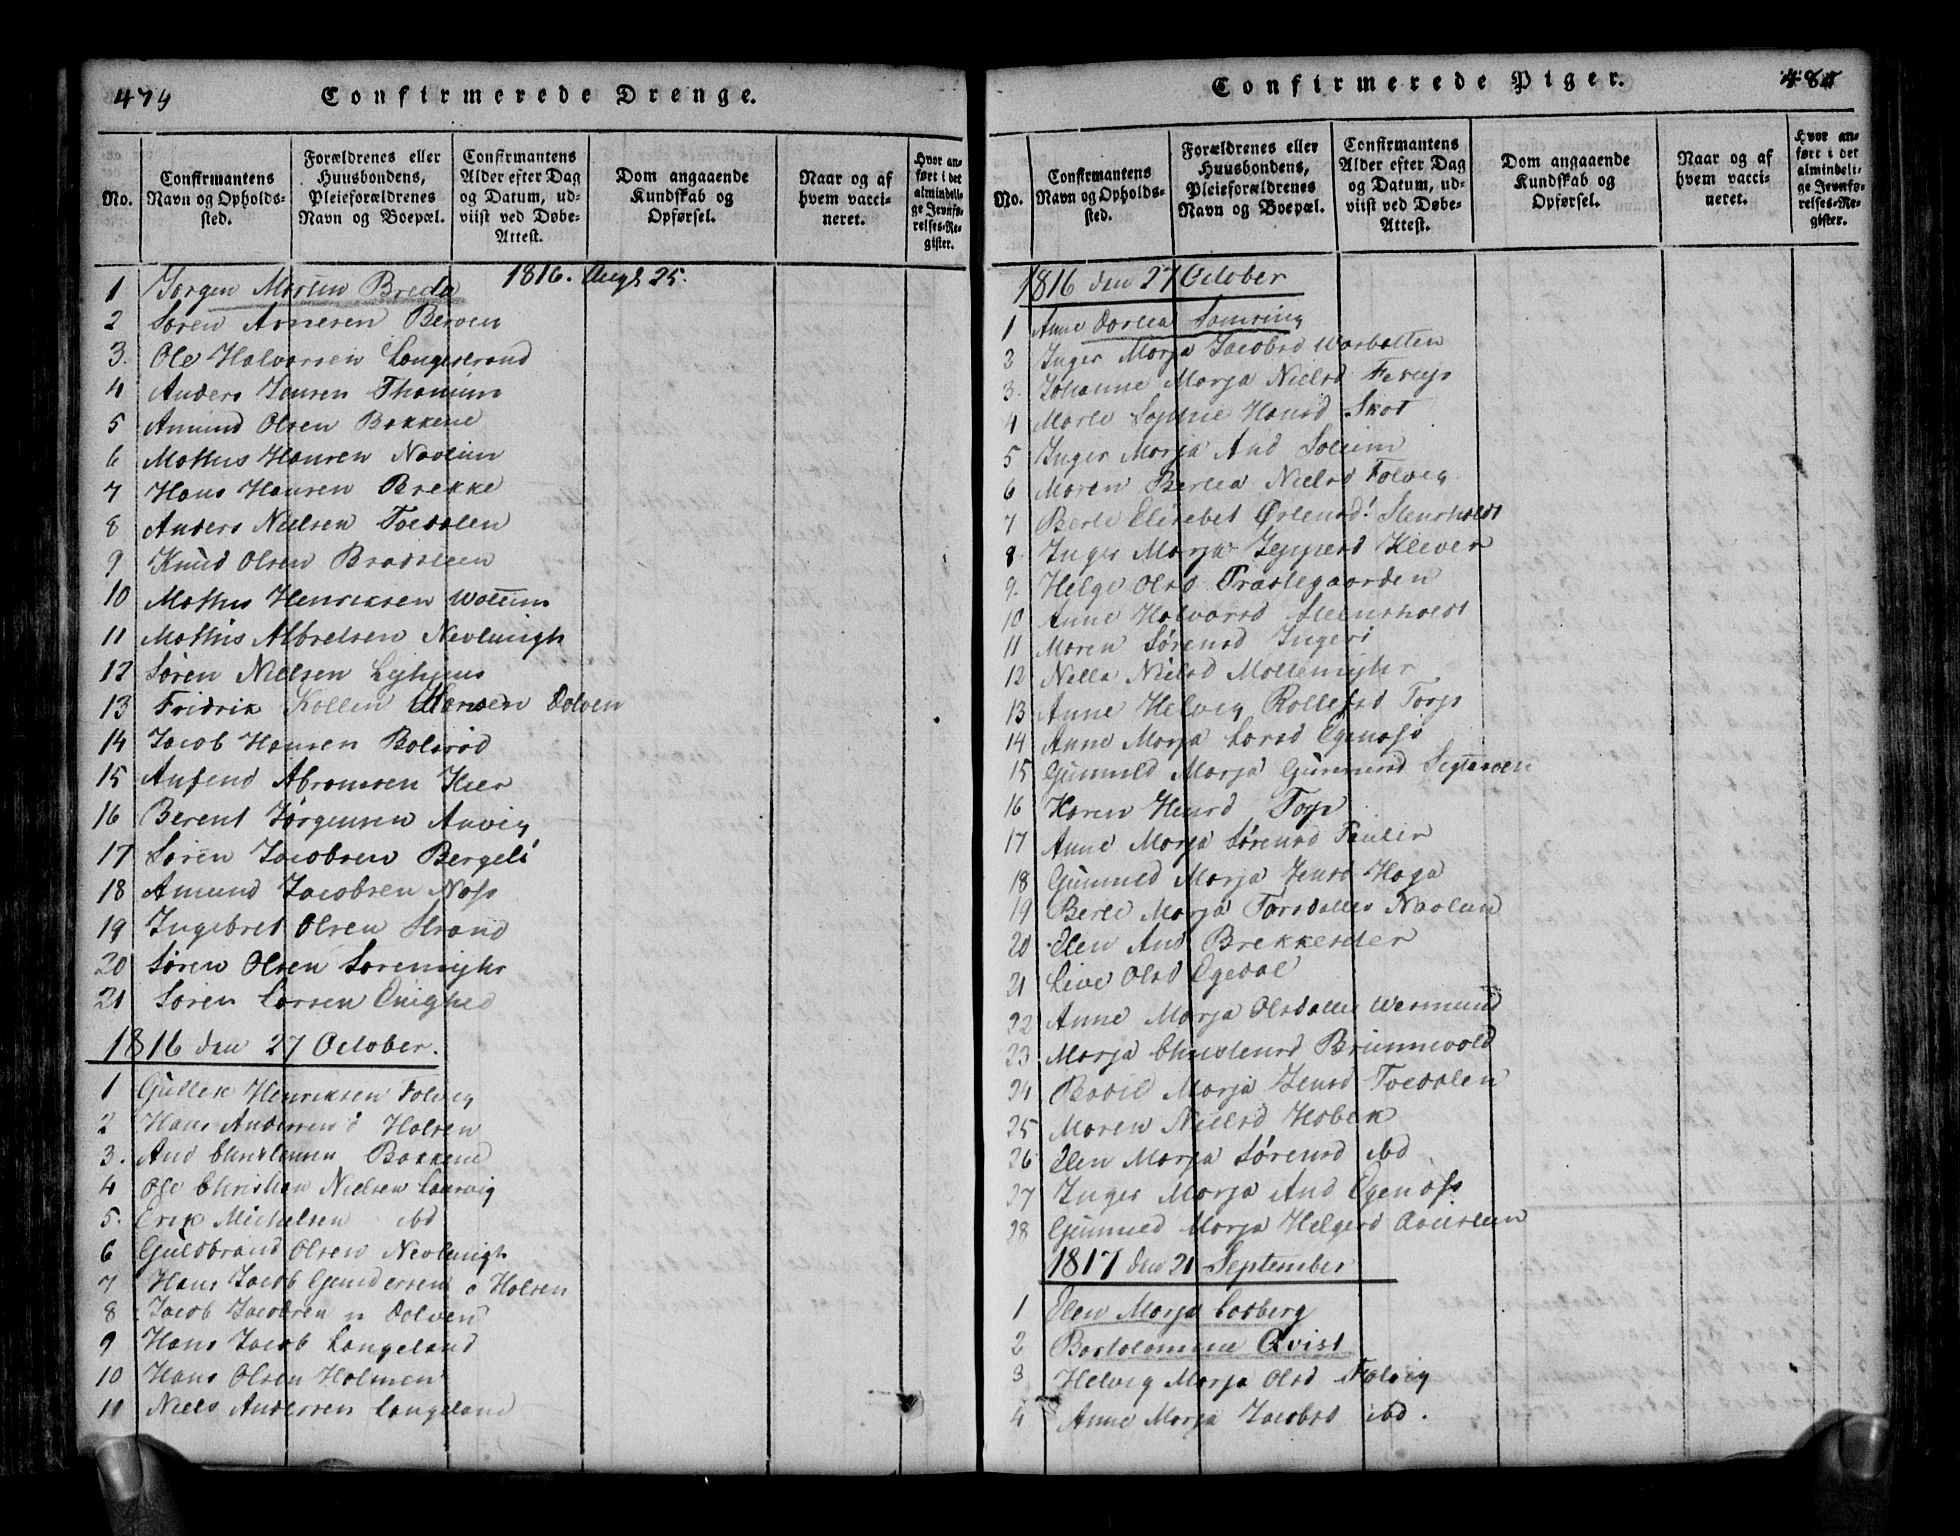 479
Confirmerede Drenge.
No.
Confirmantens Navn og Opholds-sted.
Forældrenes eller Huusbondens, Pleieforældrenes Navn og Boepæl.
Confirmantens Alder efter Dag og Datum, ud-viist ved Døbe-Attest.
Dom angaaende Kundskab og Opførsel.
Naar og af hvem vacci-neret.
Hvor an-ført i det almindeli-ge Jevnfø-relses-Re-gister.
1816. Augt 25.
1 Jørgen Morten Breda
2 Søren Arnesen Berven
3. Ole Halvorsen Langestrand
4 Anders Jensen Thanum
5 Amund Olsen Bakkene
6 Mathis Hansen Navlun
7 Hans Hansen Brekke
8 Anders Nielsen Foldalen
9 Knud Olsen Bradsteen
10 Mathis Henriksen
11 Mathis Albretsen Nevlungh
12 Søren Nielsen
13 Fridrik Kollen Hansen Dolven
14 Jacob Hansen Bolsrød
15 Anfend Abramsen Kier
16 Berent Jørgensen Anvig
17 Søren Jacobsen Bergeli
18 Amund Jacobsen Næss
19 Ingebret Olsen Strand
20 Søren Olsen
21 Søren Larsen Enighed
1816 den 27 October.
1 Gullek Henriksen Folvig
2 Hans Andersen Halsen
3. And Christensen Bakkene
4 Ole Christian Nielsen Laurvig
5. Erik Michelsen ibd
6 Guldbrand Olsen Nevlungh
7 Hans Jacob Gundersen Halsen
8 Jacob Jacobsen Dolven
9 Hans Jacob Langeland
10 Hans Olsen Holmen
11 Niels Andersen Langeland
Confirmerede Piger.
No.
Confirmantens Navn og Opholds-sted.
Forældrenes eller Huusbondens, Pleieforældrenes Navn og Boepæl.
Confirmantens Alder efter Dag og Datum, ud-viist ved Døbe-Attest.
Dom angaaende Kundskab og Opførsel.
Naar og af hvem vacci-neret.
Hvor an-ført i det almindeli-ge Jevnfø-relses-Re-gister.
1816 den 27 October
1 Anne Dortea
2 Inger Marja Jacobsd
3. Johanne Marja Nielsd
4 Marte Sophie Hansd Skot
5 Inger Marja And Solum
6 Maren Bertea Nielsd Folvig
7 Berte Elisebet
8. Inger Marja Jeppesd Klever
9. Helge Olsd Præstegaarden
10 Anne Halvorsd Steensholdt
11 Maren Sørensd
12 Nella Nielsd
13 Anne Helvig Rollefsd Torp
14 Anne Marja Larsd
15 Gunnild Marja Gunnersd
16 Karen Hensd
17 Anne Marja Sørensd
18 Gunnild Marja Jensd Haga
19 Berte Marja Navlun
20 Elen And
21 Live Olsd Egedal
22 Anne Marja Olsdatter Wermund
23 Marja Christensd Brunnevold
24 Bodil Marja Jensd Foldalen
25 Maren Nielsd Hobek
26 Elen Marja Sørensd ibd
27 Inger Marja And
28 Gunnild Marja Helgesd
1817 den 21 September
1 Elen Marja
2 Bartolomine Qvist
3 Helvig Marja Olsd Folvig
4 Anne Marja Jacobsd ibd.